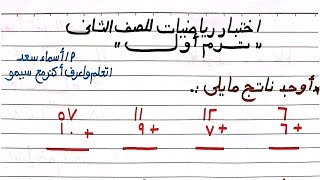 اختبار رياضيات للصف الثاني
"ترم أول"
م/ أسماء سعد
اتعلم واعرف أكتر مع سيمو
* أوجد ناتج مايلي :.
٦ ١٢ ١١ ٥٧
٦ + ٧ + ٩ + ١٠ +